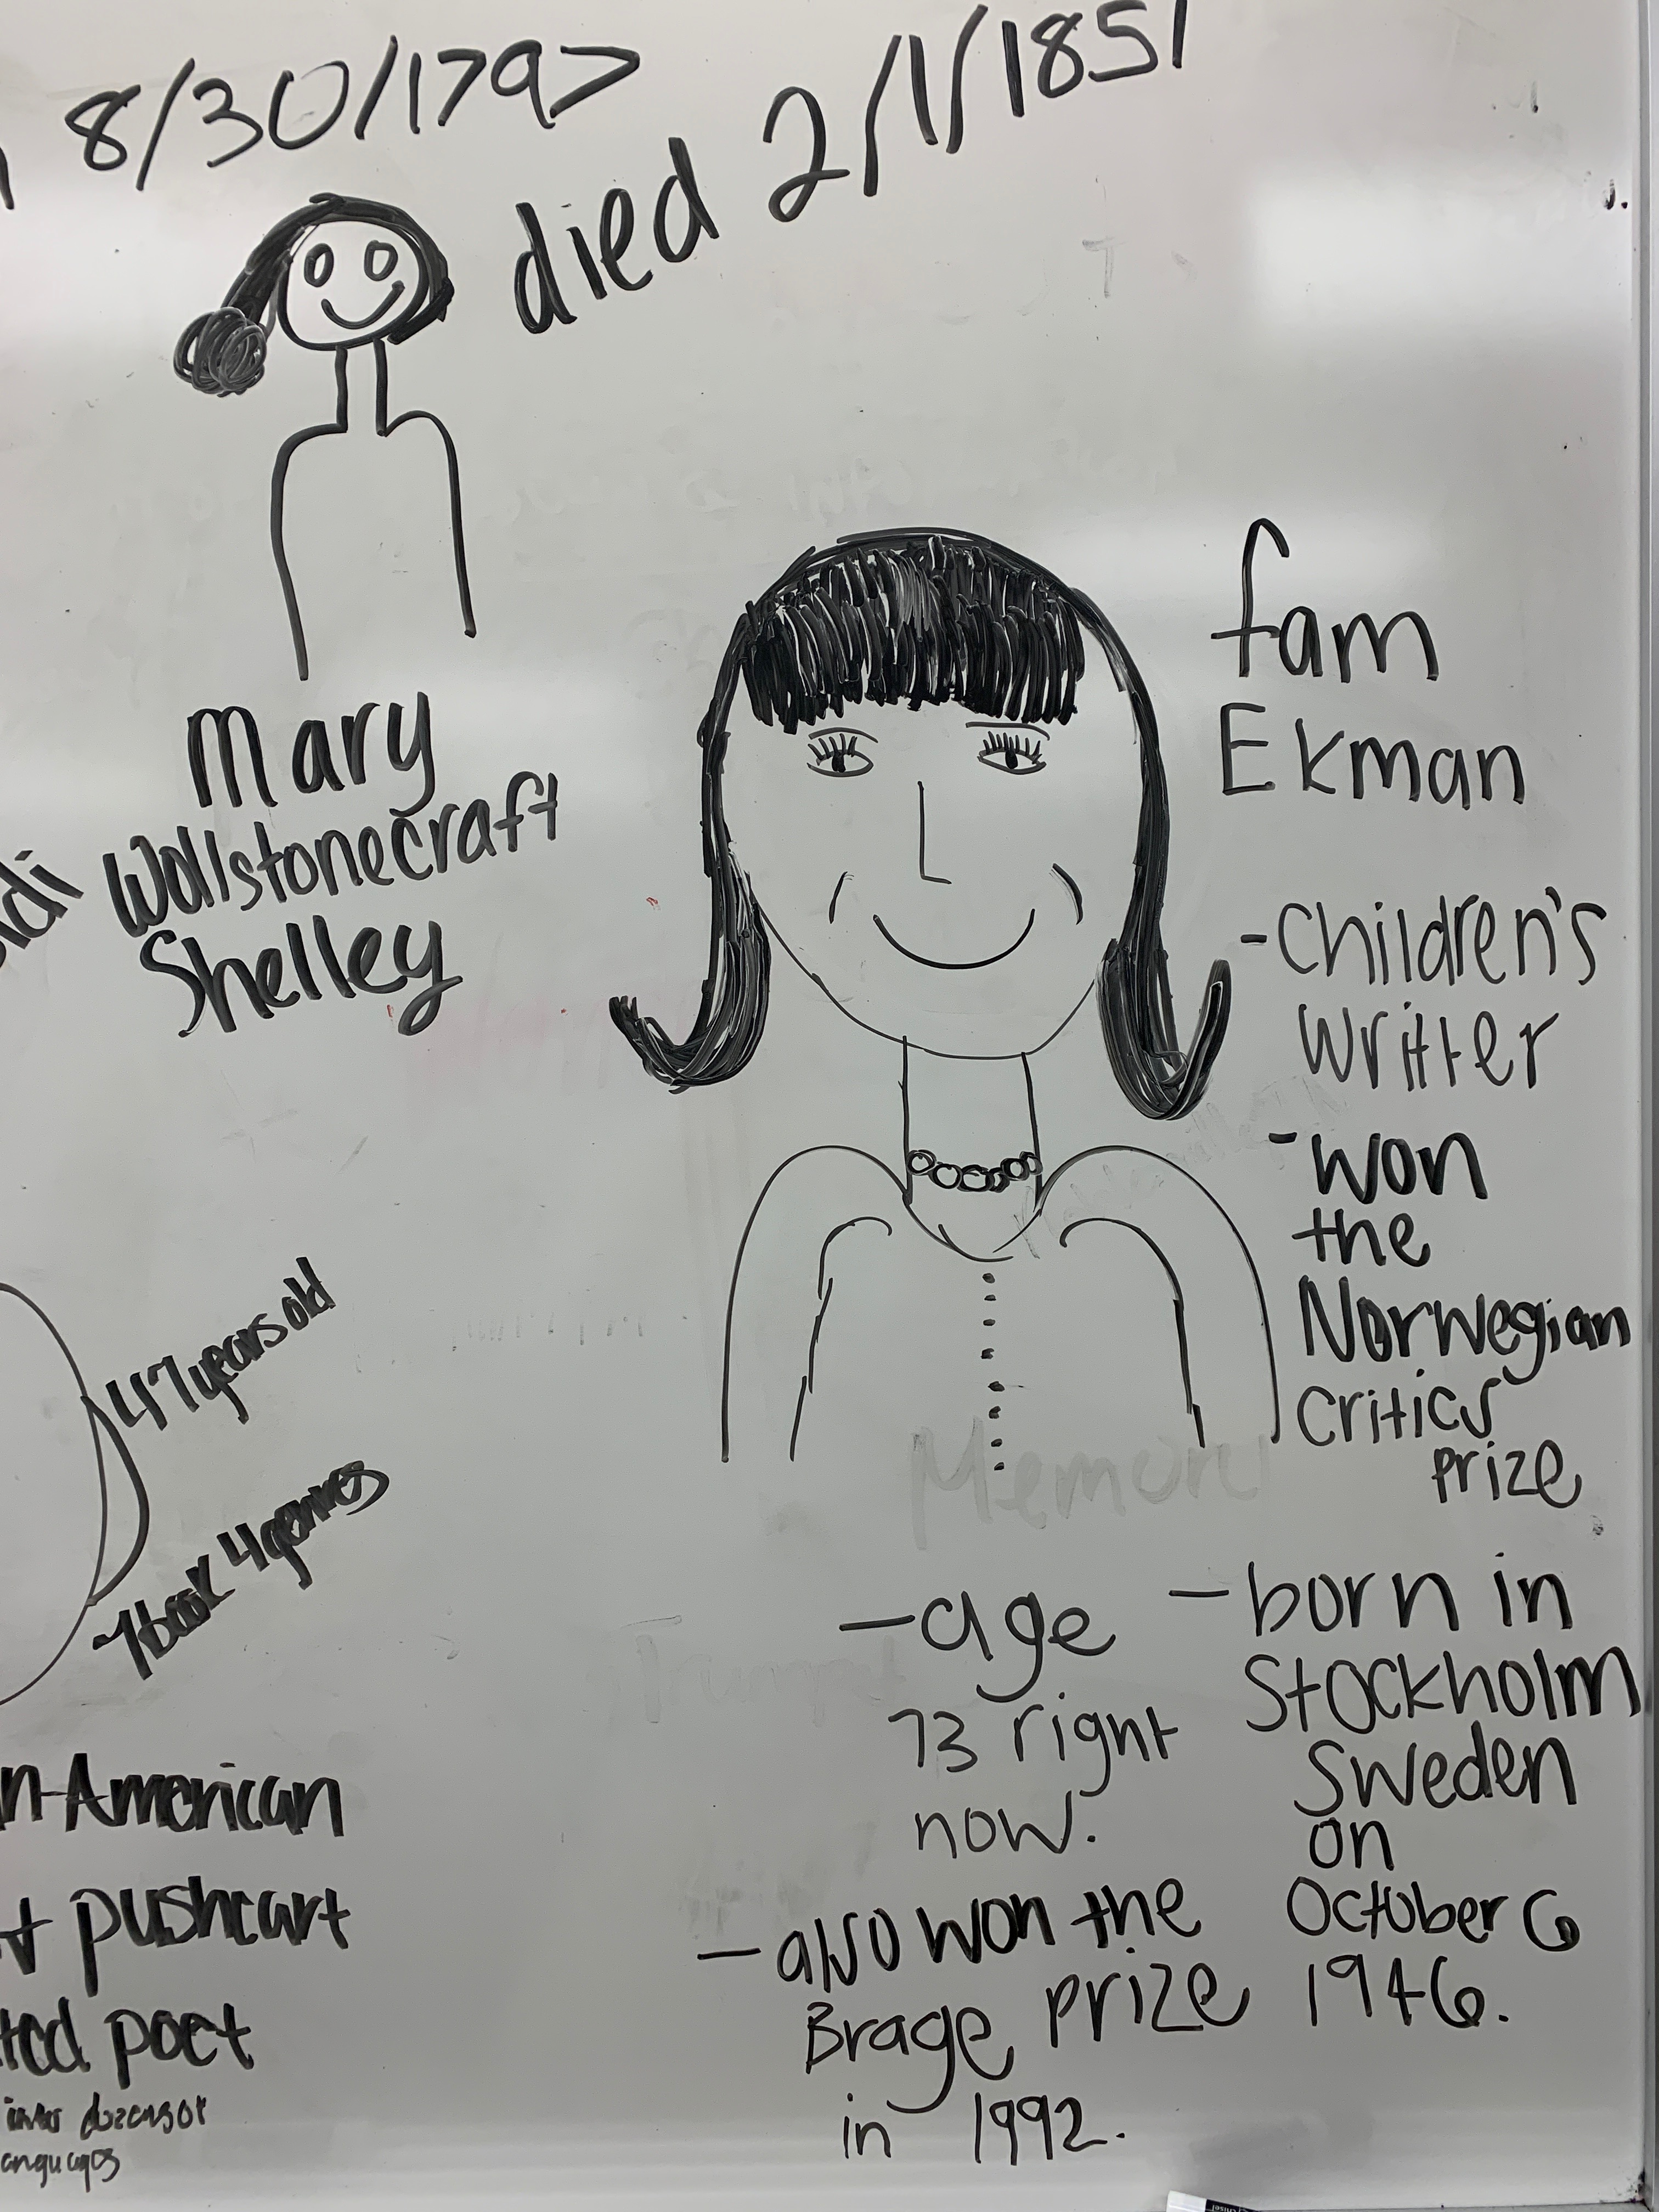 8/30/1797
died 2/1/1851
Mary
Wollstonecraft
Shelley
fam
Ekman
-Children's
writter
-won
the
Norwegian
critics
prize
-age
73 right
now.
-born in
Stockholm
Sweden
on
October 6
1946.
-also won the
Brage prize
in 1992.
47 years old
-7book 4genres
n-American
pushcart
poet
Memory